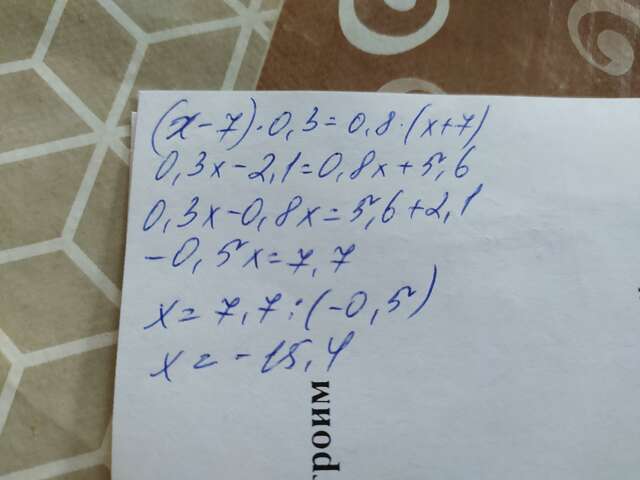 (x-7)·0,3=0,8·(x+7)
0,3x-2,1=0,8x+5,6
0,3x-0,8x=5,6+2,1
-0,5x=7,7
x=7,7:(-0,5)
x=-15,4
троим